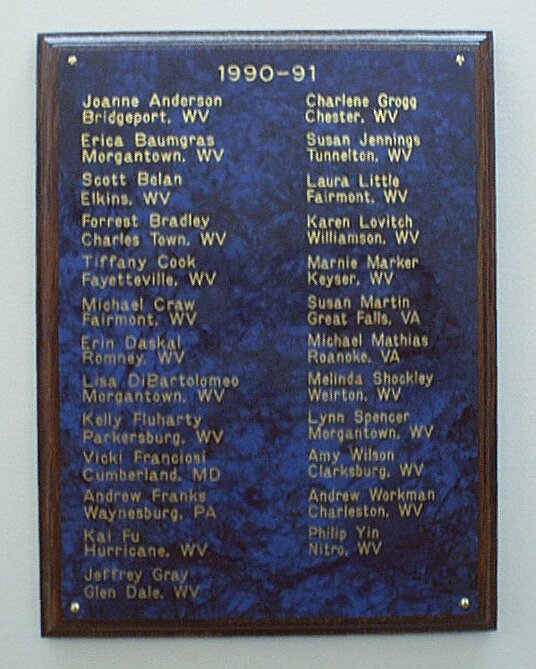 1990-91
Joanne Anderson
Bridgeport, WV
Erica Baumgras
Morgantown, WV
Scott Bolan
Elkins, WV
Forrest Bradley
Charles Town, WV
Tiffany Cook
Fayetteville, WV
Michael Craw
Fairmont, WV
Erin Daskal
Romney, WV
Lisa DiBartolomeo
Morgantown, WV
Kelly Fluharty
Parkersburg, WV
Vicki Franciosi
Cumberland, MD
Andrew Franks
Waynesburg, PA
Kai Fu
Hurricane, WV
Jeffrey Gray
Glen Dale, WV
Charlene Grogg
Chester, WV
Susan Jennings
Tunnelton, WV
Laura Little
Fairmont, WV
Karen Lovitch
Williamson, WV
Marnie Marker
Keyser, WV
Susan Martin
Great Falls, VA
Michael Mathias
Roanoke, VA
Melinda Shockley
Weirton, WV
Lynn Spencer
Morgantown, WV
Amy Wilson
Clarksburg, WV
Andrew Workman
Charleston, WV
Philip Yin
Nitro, WV